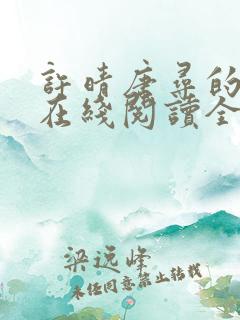 許晴唐尋的
在綫閱讀全
梁远峰
未经同意禁止转载